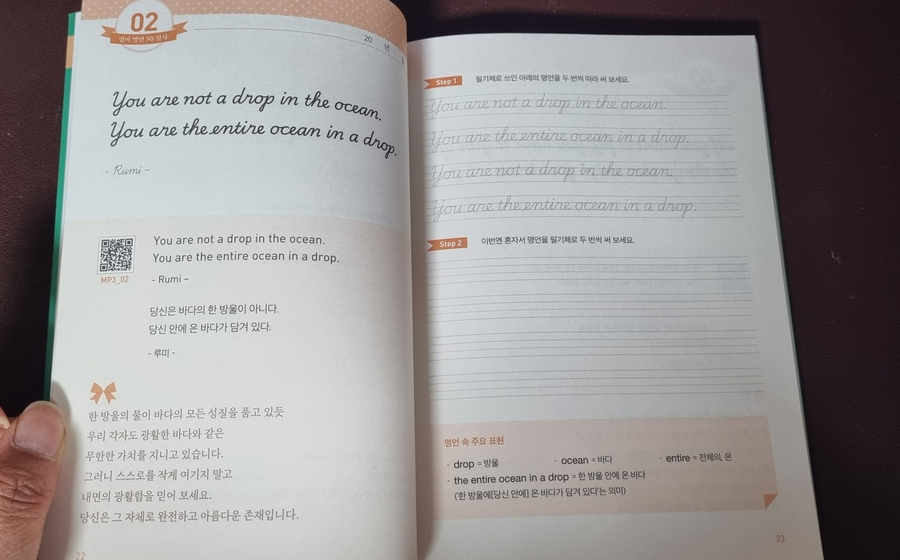 02
영어 명언 30 필사
20 년
You are not a drop in the ocean.
You are the entire ocean in a drop.
- Rumi -
You are not a drop in the ocean.
You are the entire ocean in a drop.
MP3_02
- Rumi -
당신은 바다의 한 방울이 아니다.
당신 안에 온 바다가 담겨 있다.
- 루미 -
한 방울의 물이 바다의 모든 성질을 품고 있듯
우리 각자도 광활한 바다와 같은
무한한 가치를 지니고 있습니다.
그러니 스스로를 작게 여기지 말고
내면의 광활함을 믿어 보세요.
당신은 그 자체로 완전하고 아름다운 존재입니다.
22
Step 1 필기체로 쓰인 아래의 명언을 두 번씩 따라 써 보세요.
You are not a drop in the ocean.
You are the entire ocean in a drop.
You are not a drop in the ocean.
You are the entire ocean in a drop.
Step 2 이번엔 혼자서 명언을 필기체로 두 번씩 써 보세요.
명언 속 주요 표현
· drop = 방울 · ocean = 바다 · entire = 전체의, 온
· the entire ocean in a drop = 한 방울 안에 온 바다
('한 방울에[당신 안에] 온 바다가 담겨 있다'는 의미)
23